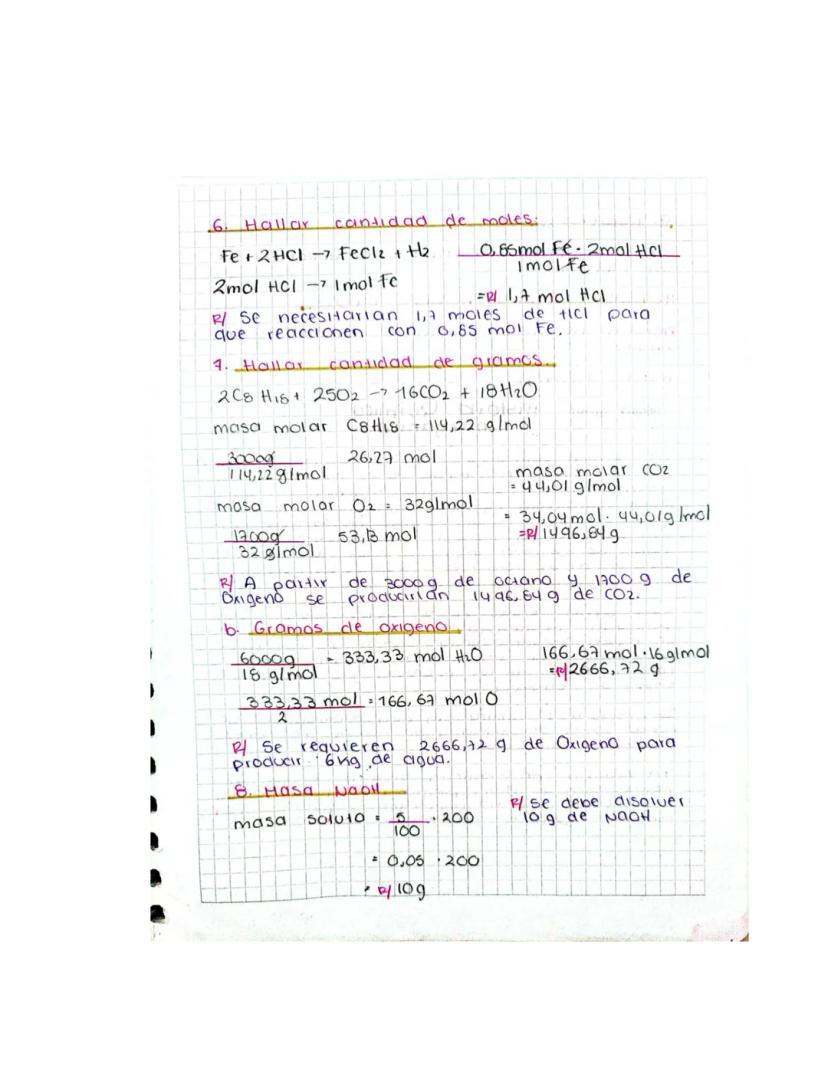 6. Hallar cantidad de moles:
Fe + 2HCl → FeCl2 + H2
0,85mol Fe · 2mol HCl
1molFe
2mol HCl → 1mol Fe
=R/ 1,7 mol HCl
R/ Se necesitarian 1,7 moles de HCl para
que reaccionen con 0,85 mol Fe.
7. Hallar cantidad de gramos.
2C8 H18 + 25O2 → 16CO2 + 18H2O
masa molar C8H18 = 114,22 g/mol
3000g 26,27 mol
114,22g/mol
masa molar CO2
= 44,01 g/mol
masa molar O2 = 32g/mol
= 34,04mol · 44,01g/mol
=R/ 1496,64g
1700g 53,13 mol
32 g/mol
R/ A partir de 3000g de octano y 1700 g de
Oxigeno se producirian 1496,64 g de CO2.
b. Gramos de oxigeno
6000g = 333,33 mol H2O
18 g/mol
166,67 mol · 16g/mol
=R/ 2666,72 g
333,33 mol = 166,67 mol O
2
R/ Se requieren 2666,72 g de Oxigeno para
producir 6kg de agua.
8. Masa NaOH
masa soluto = 5 · 200
100
R/ Se debe disolver
10 g de NaOH
= 0,05 · 200
= R/ 10g